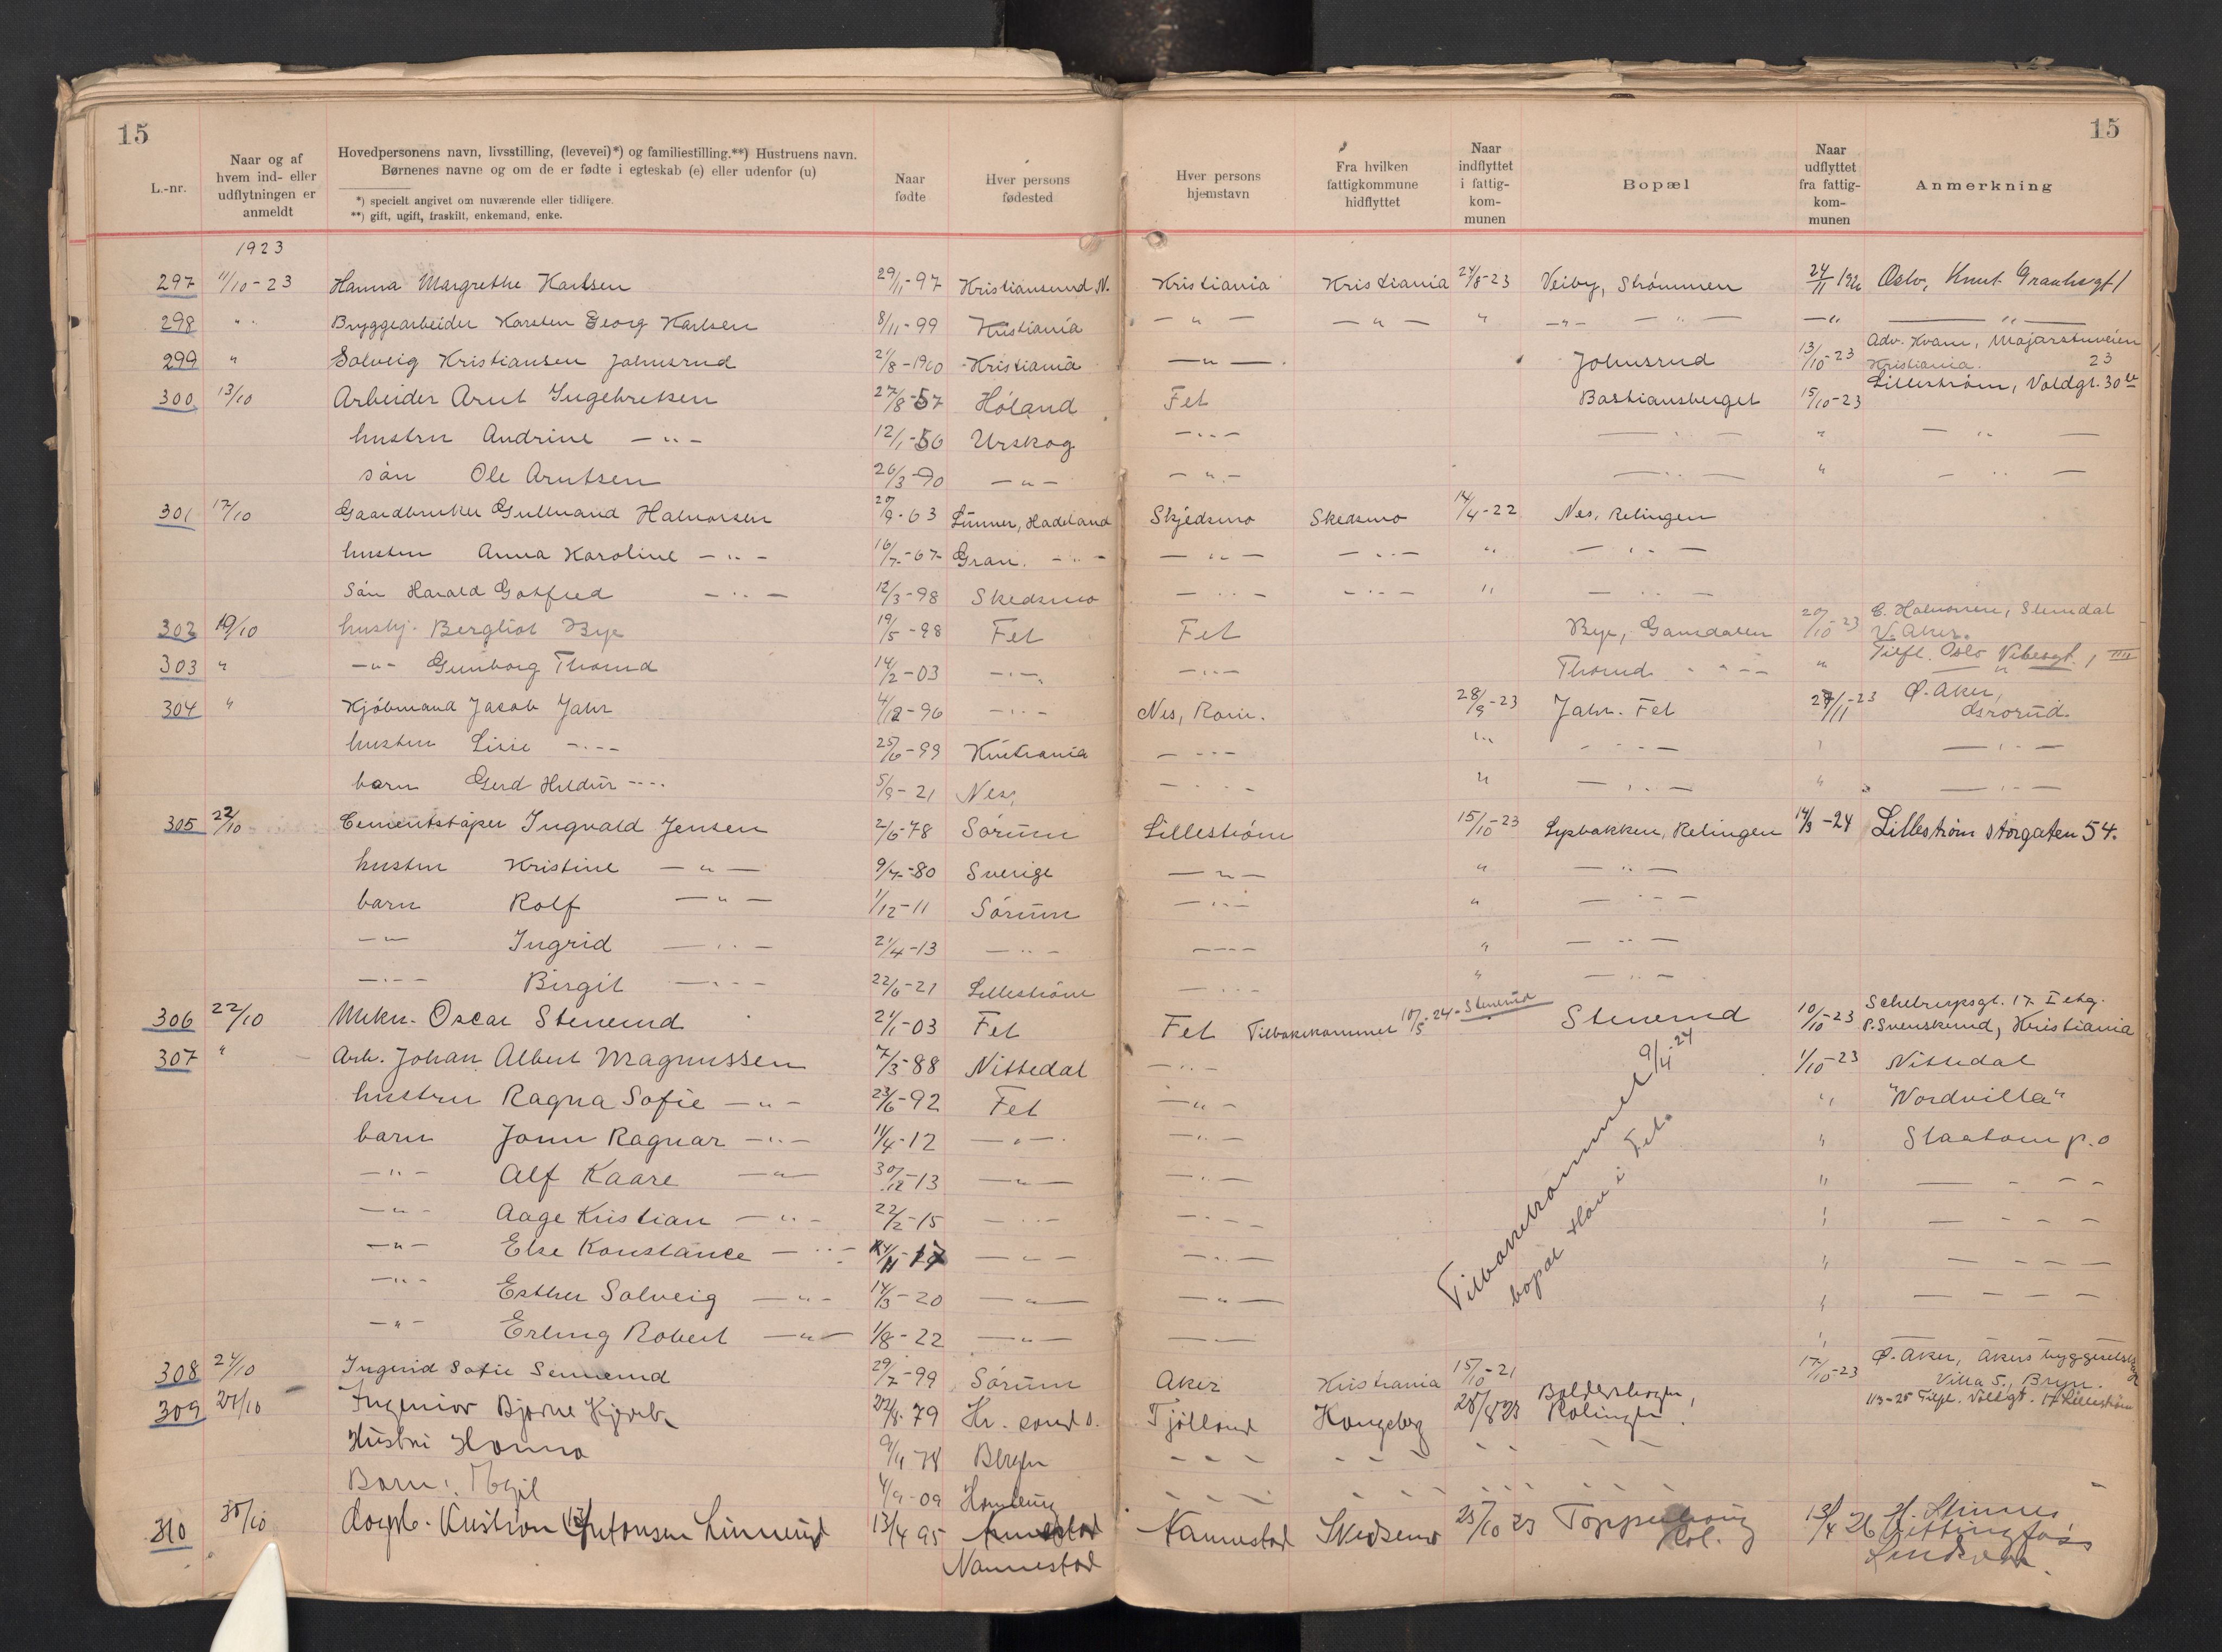 15
15
L.-nr.
Naar og af hvem ind- eller udflytningen er anmeldt
Hovedpersonens navn, livsstilling, (levevei)*) og familiestilling.**) Hustruens navn.
Børnenes navne og om de er fødte i egteskab (e) eller udenfor (u)
*) specielt angivet om nuværende eller tidligere.
**) gift, ugift, fraskilt, enkemand, enke.
Naar fødte
Hver persons fødested
Hver persons hjemstavn
Fra hvilken fattigkommune hidflyttet
Naar indflyttet i fattig-kom-munen
Bopæl
Naar udflyttet fra fattig-kom-munen
Anmerkning
1923
297 11/10-23 Hanna Margrethe Karlsen 29/11-97 Kristiansund N. Kristiania Kristiania 24/8-23 Veiby, Strømmen 24/11 1926 Oslo, Knut
298 " Bryggearbeider Karsten Georg Karlsen 8/11-99 Kristiania — " — — " — " — " — — " — — " — " —
299 " Solveig Kristiansen Johnsrud 21/8-1900 Kristiania — " — Johnsrud 13/10-23 Adv. Kvam, Majorstuveien 23 Kristiania.
300 13/10 Arbeider Arnt Ingebretsen 27/8-57 Høland Fet Bastiansberget 15/10-23 Lillestrøm, Voldgt. 30
hustru Andrine — " — 12/1-56 Urskog — " — — " — " — " —
søn Ole Arntsen 26/3-90 — " — — " — — " — " — " —
301 17/10 Gaardbruker Gulbrand Halvorsen 20/9-63 Lunner, Hadeland Skjedsmo Skedsmo 14/4-22 Nes, Relingen
hustru Anna Karoline — " — 16/7-67 Gran. — " — — " — — " — " — " —
Søn Harald Gotfred — " — 12/3-98 Skedsmo — " — — " — " — " —
302 19/10 hushj. Bergliot Bye 19/5-98 Fet Fet Bye, Gansdalen 20/10-23 E. Halvorsen, Slemdal V. Aker.
303 " — " — Gunborg Thorud 14/2-03 — " — — " — Thorud — " — " Tilfl. Oslo Vibesgt. 1 III
304 " Kjøbmand Jacob Jahr 4/12-96 — " — Nes, Rom. 28/9-23 Jahr. Fet 27/11-23 Ø. Aker,
hustru Lisie — " — 25/6-99 Kristiania — " — " — " — " — " —
barn Gerd Hildur — " — 5/9-21 Nes, — " — " — " — " — " —
305 22/10 Cementstøper Ingvald Jensen 2/6-78 Sørum Lillestrøm 15/10-23 Lysbakken, Relingen 14/3-24 Lillestrøm Storgaten 54.
hustru Kristine — " — 9/7-80 Sverige — " — " — " —
barn Rolf — " — 1/12-11 Sørum — " — " — " —
— " — Ingrid — " — 21/4-13 — " — — " — " — " —
— " — Birgit — " — 22/6-21 Lillestrøm — " — " — " —
306 22/10 Mekn. Oscar Stenerud 21/1-03 Fet Fet Tilbakekommet 10/5-24 - Stenerud Stenerud 10/10-23 Schultzesgt. 17 I etg. P. Svenskerud, Kristiania
307 " Arb. Johan Albert Magnussen 7/3-88 Nittedal — " — 1/10-23 Nittedal
hustru Ragna Sofie — " — 23/6-92 Fet — " — " "Nordvilla"
barn Jonn Ragnar — " — 11/4-12 — " — — " — " Slaatom p.o
— " — Alf Kaare — " — 30/12-13 — " — — " — " — - - -
— " — Aage Kristian — " — 22/2-15 — " — — " — " — - - -
— " — Else Konstance — " — 14/11-17 — " — — " — " — - - -
— " — Esther Solveig — " — 14/3-20 — " — — " — " — - - -
— " — Erling Robert — " — 1/8-22 — " — — " — " —
Tilbakekommet 9/4-24
bopæl Hovi i Fet.
308 24/10 Ingrid Sofie Sennerud 29/7-99 Sørum Aker Kristiania 15/10-21 17/10-23 Ø. Aker, Akers byggeselskap Villa 5, Bryn.
309 24/10 Ingeniør Bjarne 22/8-79 Kr. sund S. Tjølling Kongsberg 28/8 23 Rælingen. 1/3-25 Tilfl. Voldgt. 17 Lillestrøm
Hustru Hanna 9/11 78 Bergen - - - - - - - - - -
Barn: 4/9-09 Hamburg - - - - - - - - - - -
310 30/10 Kristian Antonsen Linnerud 13/4 95 Nannestad Nannestad Skedsmo 25/10 23 Toppenhaug Ræl. 13/4 26 H. Vittingfoss